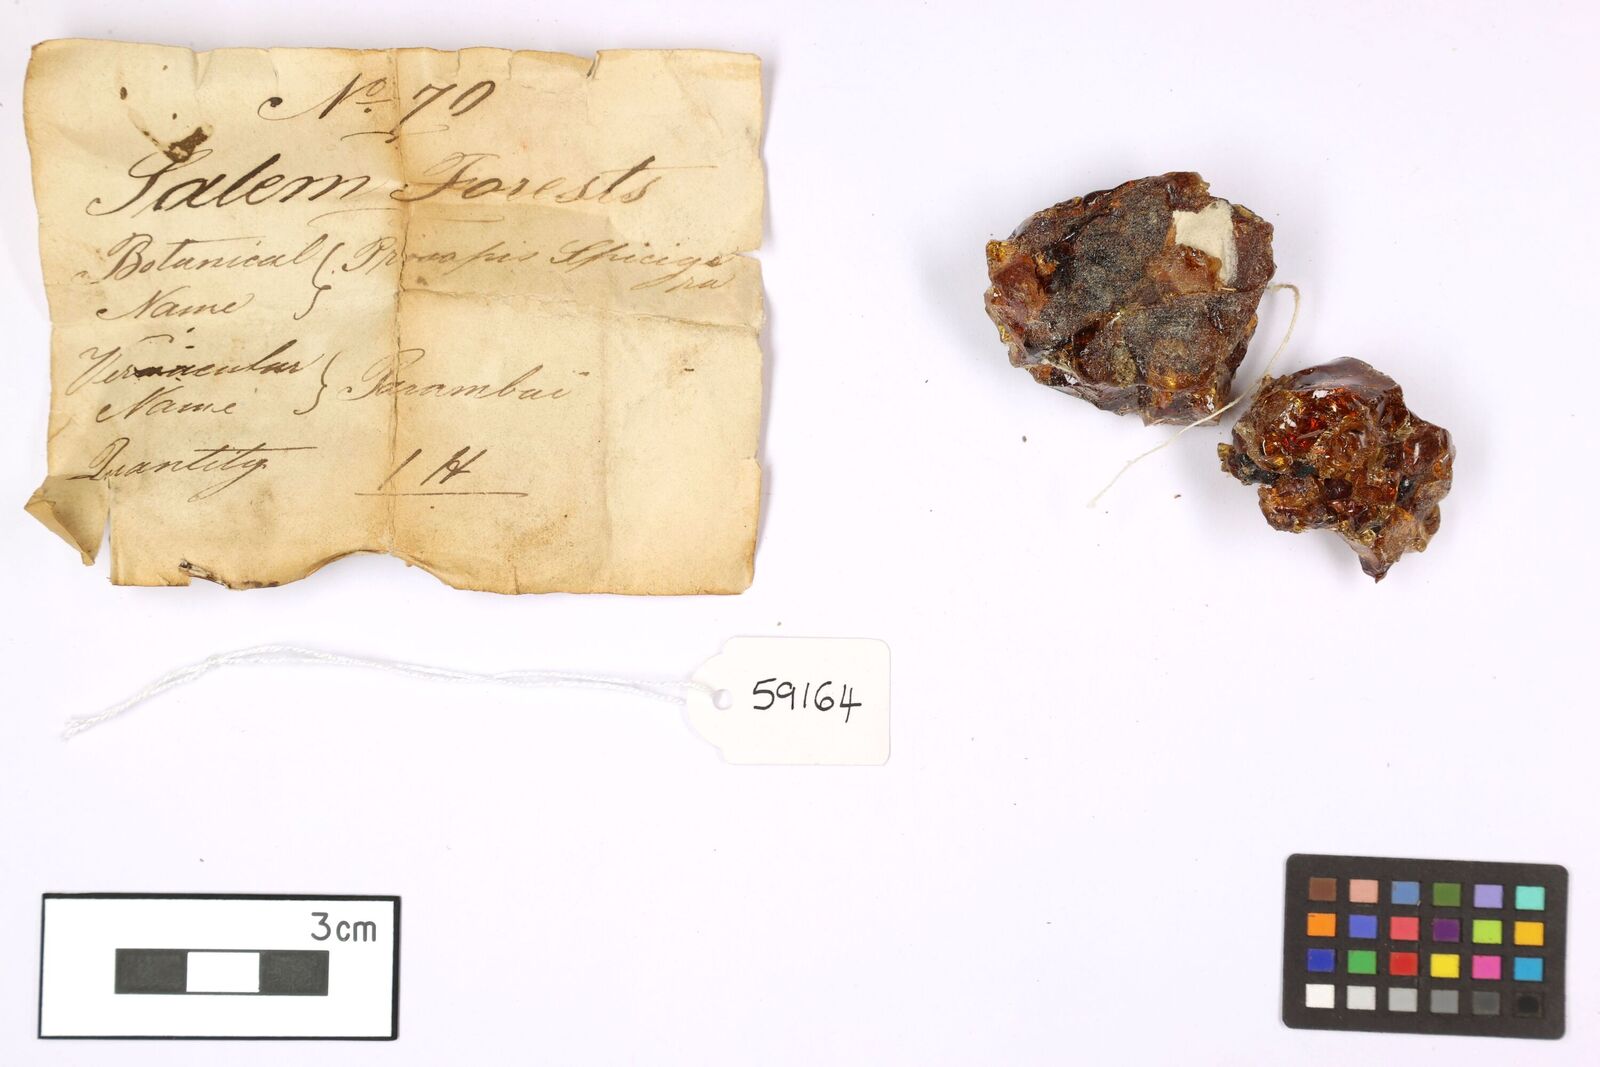 No. 70
Salem Forests
Botanical Name } Prosopis Spicigera
Vernacular Name } Parambai
Quantity 1 lb
59164
3cm